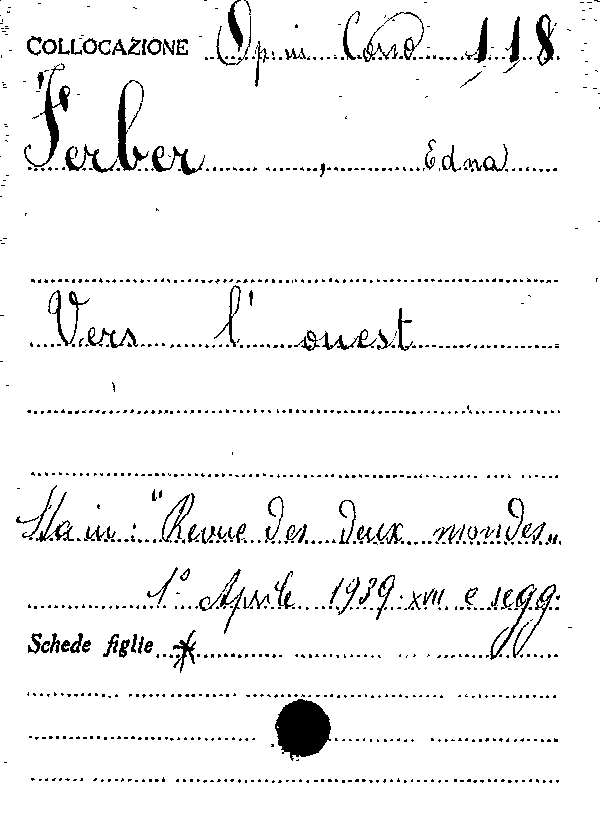 COLLOCAZIONE Op. in Corso 118
Ferber, Edna
Vers l'ouest
Sta in: "Revue des deux mondes"
1° Aprile 1939. XVII e segg.
Schede figlie *